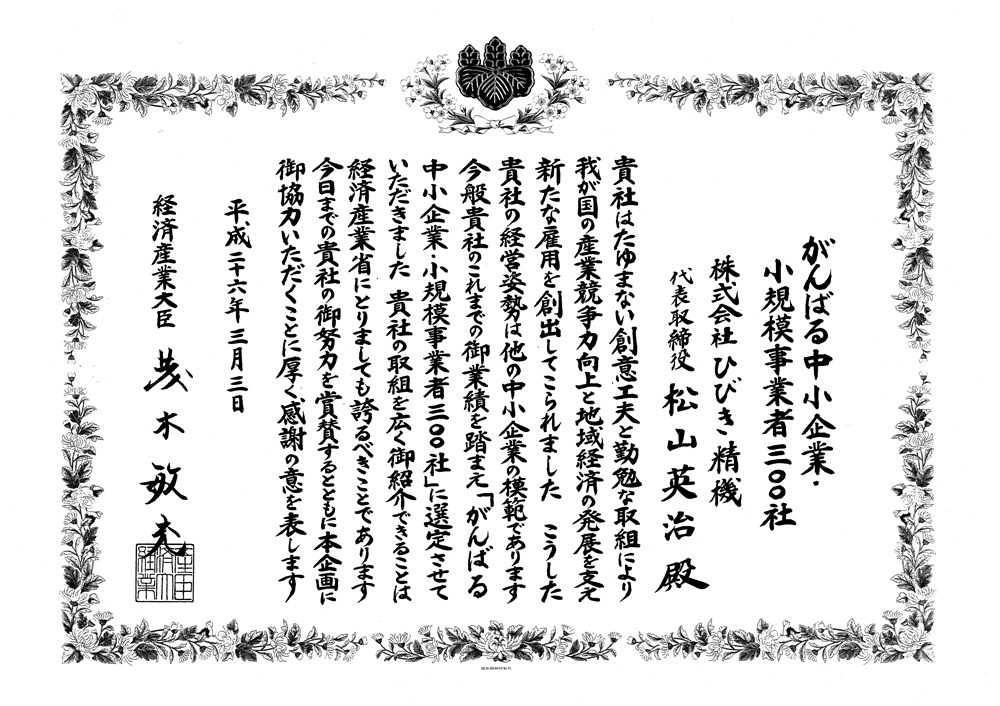 がんばる中小企業・
小規模事業者三〇〇社
株式会社 ひびき精機
代表取締役 松山英治 殿
貴社はたゆまない創意工夫と勤勉な取組により
我が国の産業競争力向上と地域経済の発展を支え
新たな雇用を創出してこられました こうした
貴社の経営姿勢は他の中小企業の模範であります
今般貴社のこれまでの御業績を踏まえ「がんばる
中小企業・小規模事業者三〇〇社」に選定させて
いただきました 貴社の取組を広く御紹介できることは
経済産業省にとりましても誇るべきことであります
今日までの貴社の御努力を賞賛するとともに本企画に
御協力いただくことに厚く感謝の意を表します
平成二十六年三月三日
経済産業大臣 茂木敏充